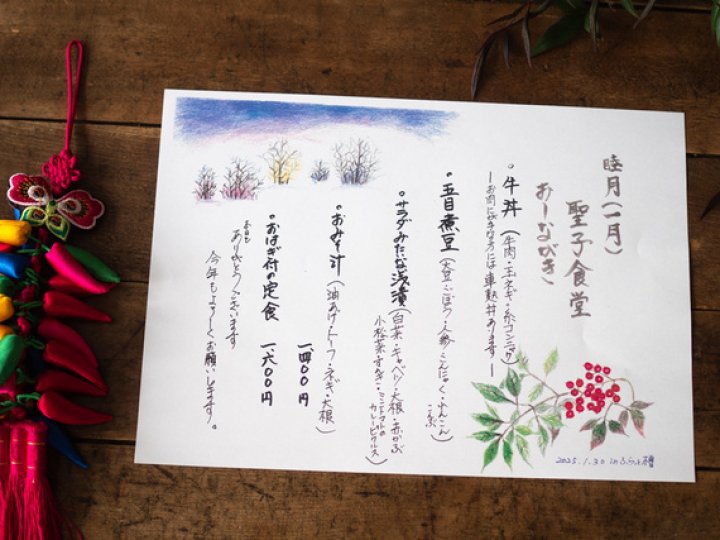 睦月(一月)
聖子食堂
おーなびき
・牛丼(牛肉・玉ネギ・糸コンニャク)
ーお肉にが手な方には車麩丼ありますー
・五目煮豆(大豆・ごぼう・人参・こんにゃく・れんこん・こぶ)
・サラダみたいな浅漬(白菜・キャベツ・大根・赤かぶ
小松菜・すんき・ミニトマトの
カレーピクルス)
・おみそ汁(油あげ・トーフ・ネギ・大根)
一四〇〇円
・おはぎ付の定食 一六〇〇円
本日も
ありがとうございます
今年もよろしくお願いします。
2025.1.30 in ふらっと檜